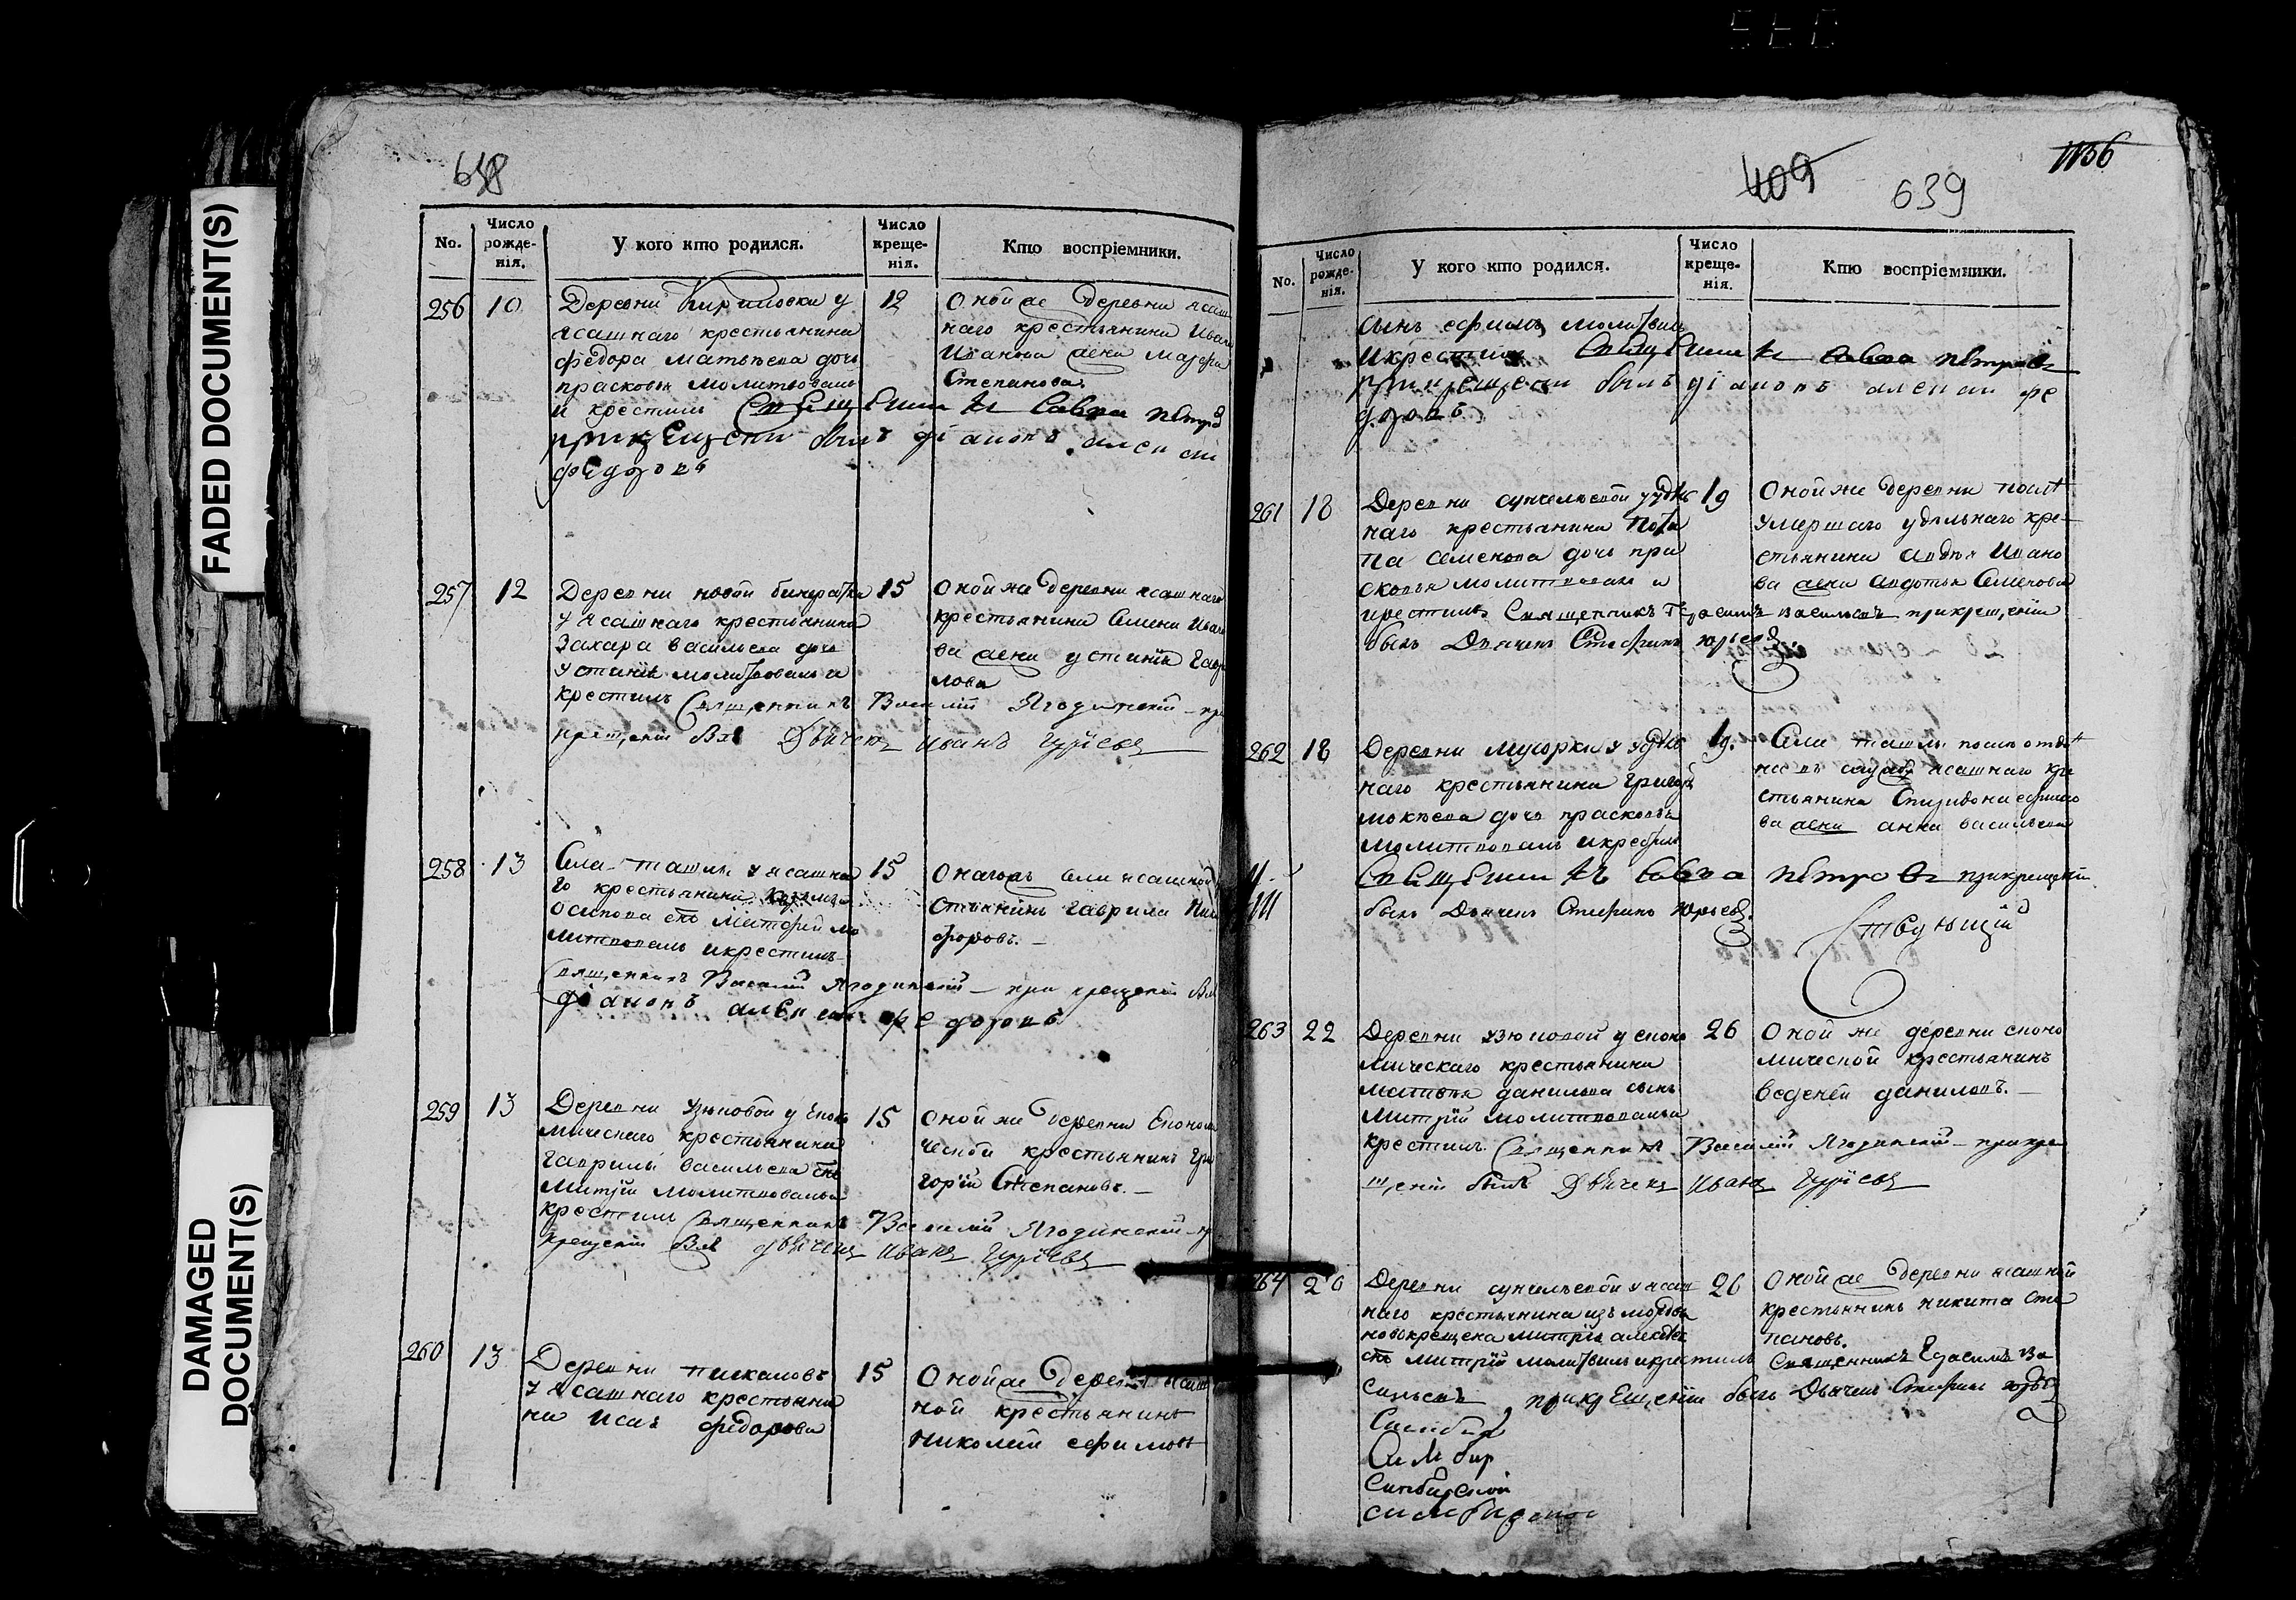 FADED DOCUMENT(S)
DAMAGED
DOCUMENT(S)
638
No.
Число рожде-нія.
У кого кто родился.
Число креще-нія.
Кто воспріемники.
256 10
Деревни Кириловки у
ясашнаго крестьянина
федора матвеева дочь
прасковья молитвовалъ
и крестилъ Священникъ Савва петровъ
прикрещени былъ діаконъ алексей
федоровъ
12
Оной же деревни ясаш
наго крестьянина Иван
Иванова жена
Степанова
257 12
Деревни новой
у ясашнаго крестьянина
Захара васильева дочь
устинья молитвовалъ и
крестилъ Священникъ Василій Ягодинскій – при
крещеніи былъ Дьячекъ иванъ Гурьевъ
15
Оной же деревни ясашнаго
крестьянина Семена Ивано
ва жена устинья Гаври
лова
258 13
Села ташлы у ясашна
го крестьянина
осипова снъ митрфей мо
литвовалъ и крестилъ
Священникъ Василій Ягодинскій – при крещеніи был
діаконъ алексей федоровъ
15
Онагожъ села ясашной
стьянинъ гаврила Ники
форовъ. –
259 13
Деревни Узюковой у Еконо
мическаго крестьянина
гаврилы васильева снъ
митрій молитвовалъ и
крестилъ Священникъ Василій Ягодинскій –
крещеніи былъ дьячекъ иванъ Гурьевъ
15
Оной же деревни Економи
ческой крестьянинъ Гри
горій Степановъ. –
260 13
Деревни пискаловъ
у ясашнаго крестьяни
на Исая федорова
15
Оной же деревни ясаш
ной крестьянинъ
николай ефимовъ
409
639
1136
No.
Число рожде-нія.
У кого кто родился.
Число креще-нія.
Кто воспріемники.
сынъ ефимъ молитвилъ
и крестилъ Священникъ Савва петровъ
прикрещени былъ діаконъ алексей фе
доровъ
261 18
Деревни сускальской у удѣль
наго крестьянина пота
па семенова дочь пра
сковья молитвовалъ и
крестилъ Священникъ Герасимъ васильевъ прикрещеніи
былъ Дьячекъ Стефанъ юрьевъ
19
Оной же деревни послѣ
умершаго удельнаго кре-
стьянина авдѣя Ивано
ва жена авдотья Семенова
262 18
Деревни мусорки у удѣль
наго крестьянина григорья
мокѣева дочь прасковья
молитвовалъ и крестилъ
Священникъ Савва петровъ прикрещеніи
былъ Дьячекъ Стефанъ Юрьевъ.
19.
Села ташлы послѣ отда
на въ службу ясашнаго кре
стьянина Спиридона ефимо
ва жена анна васильева
ствующій
263 22
Деревни узюковой у еконо
мическаго крестьянина
матвея данилова сынъ
митрій молитвовалъ и
крестилъ Священникъ Василій Ягодинскій – прикре
щеніи былъ Дьячекъ Иванъ Гурьевъ
26
Оной же деревни еконо
мической крестьянинъ
веденей даниловъ. –
264 26
Деревни сускальской у ясаш
наго крестьянина изъ мордвы
новокрещена митрія алексѣева
снъ митрій молитвилъ и крестилъ Священникъ Герасимъ Ва
сильевъ прикрещеніи былъ Дьячекъ Стефанъ юрьев
26
Оной же деревни ясашной
крестьянинъ никита сте
пановъ.
Симбир
Симбир
Симбирской
симбирской